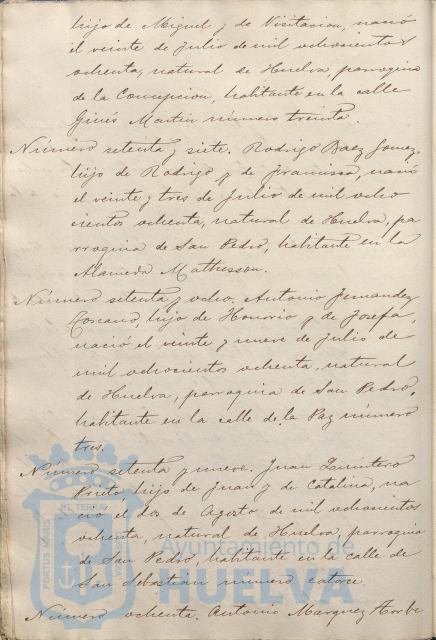 hijo de Miguel y de Visitacion, nació
el veinte de julio de mil ochocientos
ochenta, natural de Huelva, parroquia
de la Concepcion, habitante en la calle
Ginés Martin número treinta.
Número setenta y siete. Rodrigo Baez Gomez,
hijo de Rodrigo y de Francisca, nació
el veinte y tres de Julio de mil ocho
cientos ochenta, natural de Huelva, pa
rroquia de San Pedro, habitante en la
Alameda Mathesson.
Número setenta y ocho. Antonio Fernandez
Toscano, hijo de Honorio y de Josefa,
nació el veinte y nueve de julio de
mil ochocientos ochenta, natural
de Huelva, parroquia de San Pedro,
habitante en la calle de la Paz número
tres.
Número setenta y nueve. Juan Quintero
Prieto, hijo de Juan y de Catalina, na
ció el dos de Agosto de mil ochocientos
ochenta, natural de Huelva, parroquia
de San Pedro, habitante en la calle de
San Sebastian número catorce.
Número ochenta. Antonio Marquez
PORTUS MARIS ET TERRAE
Ayuntamiento de
HUELVA